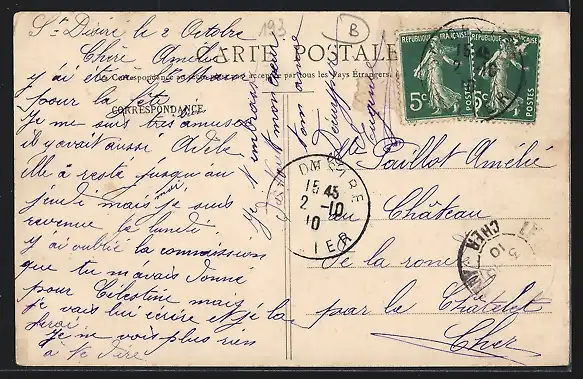 St Désiré le 2 Octobre
Chère Amélie
CARTE POSTALE
La Correspondance au recto n'est pas acceptée par tous les Pays Étrangers
CORRESPONDANCE
j'ai été à
pour la fête
Je me suis très amusée
il y avait aussi Adèle
elle a resté jusqu'au
jeudi mais je suis
revenue le lundi
J'ai oublié la commission
que tu m'avais donné
pour Célestine mais
je vais lui écrire et je la
ferai
Je ne vois plus rien
à te dire
Je t'embrasse
de tout mon cœur
ton amie
Eugénie
193
B
REPUBLIQUE FRANÇAISE
5c
POSTES
REPUBLIQUE FRANÇAISE
5c
POSTES
15 45
2 -10
10
Mlle Paillot Amélie
au Château
De la ronce
par le Châtelet
Cher
CHER
10